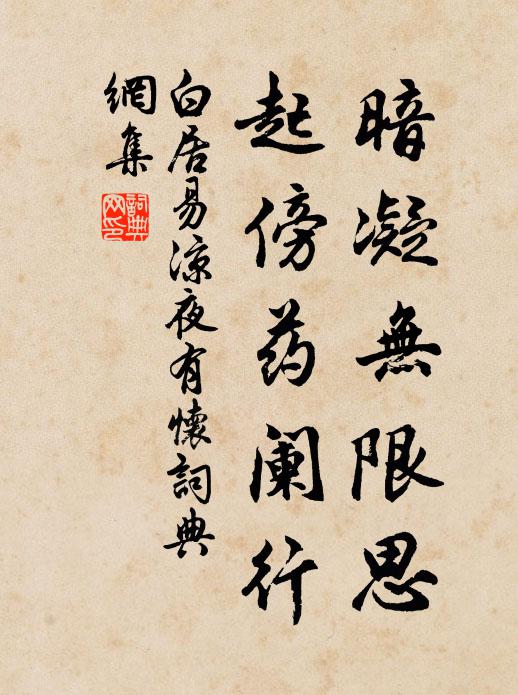 暗凝無限思
起傍药阑行
白居易涼夜有懷詞典
網集
詞典
网印